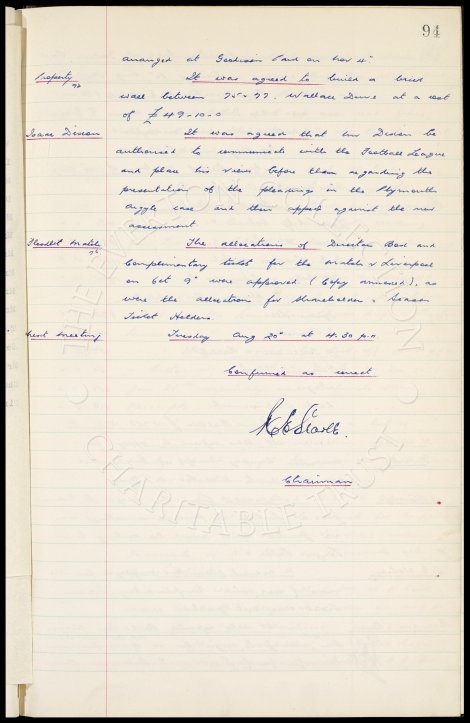 94
arranged at Goodison Park on Nov 4th
Property It was agreed to build a brick
wall between 75-77 Wallace Drive at a cost
of £49-10-0
Isaac Dixon It was agreed that Mr Dixon be
authorised to communicate with the Football League
and place his views before them regarding the
presentation of the pleadings in the Plymouth
Argyle case and their appeal against the new
assessment
Floodlit Match The allocations of Directors Box and
Complimentary tickets for the match v Liverpool
on Oct 9th were approved (Copy annexed), as
were the allocation for Shareholder & Season
Ticket Holders.
Next Meeting Tuesday Aug 20th at 4.30 p.m
Confirmed as correct
Chairman
THE EVERTON COLLECTION
CHARITABLE TRUST